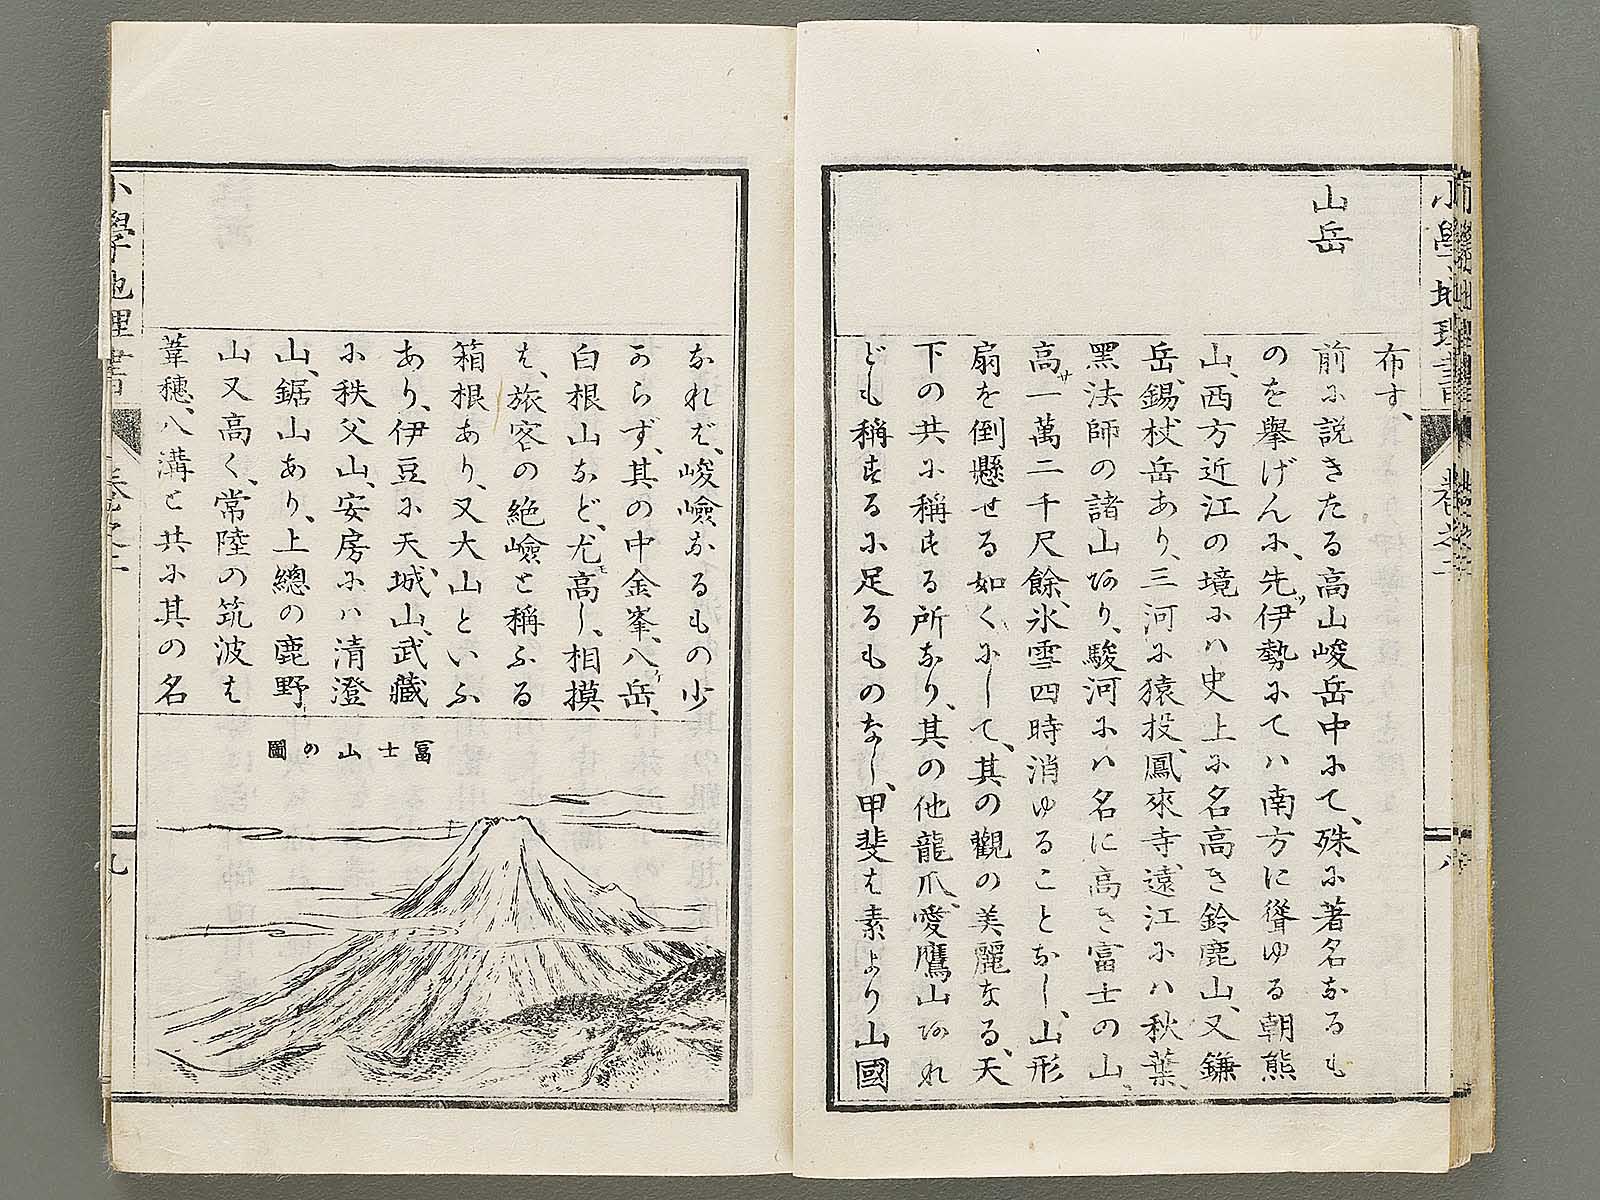 山岳
布す、
前に説きたる高山峻岳中にて、殊に著名なるも
のを擧げんに、先ツ伊勢にてハ南方に聳ゆる朝熊
山、西方近江の境にハ史上に名高き鈴鹿山、又鎌
岳、錫杖岳あり、三河に猿投、鳳來寺、遠江にハ秋葉、
黑法師の諸山あり、駿河にハ名に高き富士の山、
高サ一萬二千尺餘、氷雪四時消ゆることなし、山形
扇を倒懸せる如くにして、其の觀の美麗なる、天
下の共に稱する所なり、其の他龍爪、愛鷹山あれ
ども稱するに足るものなし、甲斐は素より山國
なれば、峻嶮なるもの少
からず、其の中金峯、八ツ岳、
白根山など、尤モ高し、相摸
は、旅客の絶嶮と稱ふる
箱根あり、又大山といふ
あり、伊豆に天城山、武藏
に秩父山、安房にハ清澄
山、鋸山あり、上總の鹿野
山又高く、常陸の筑波は
葦穗、八溝と共に其の名
冨士山の圖
小學地理書
卷之二
八
小學地理書
卷之二
九